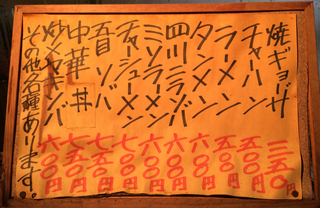 焼ギョーザ 三五〇円
チャーハン 五五〇円
ラーメン 五〇〇円
タンメン 六〇〇円
四川ラーメン 六〇〇円
ミソラーメン 六〇〇円
チャーシューメン 七〇〇円
五目ソバ 七〇〇円
中華丼 七五〇円
ヤキソバ 六〇〇円
その他各種あります。